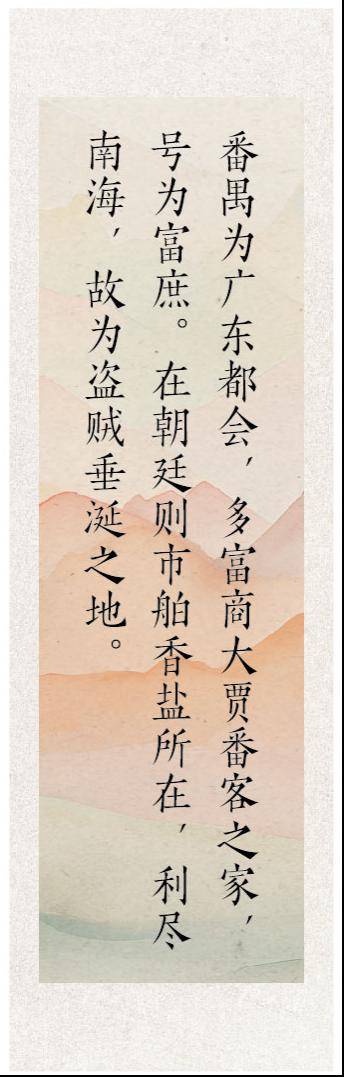 番禺为广东都会，多富商大贾番客之家，
号为富庶。在朝廷则市舶香盐所在，利尽
南海，故为盗贼垂涎之地。